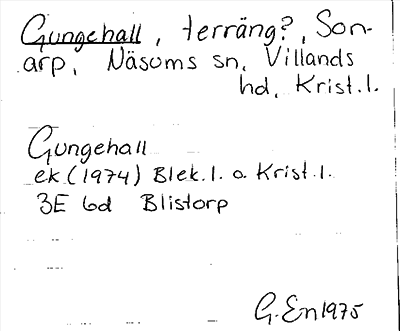 Gungehall, terräng?, Son-
arp, Näsums sn, Villands
hd, Krist. l.
Gungehall
ek (1974) Blek. l. o. Krist. l.
3E 6d Blistorp
G. En 1975